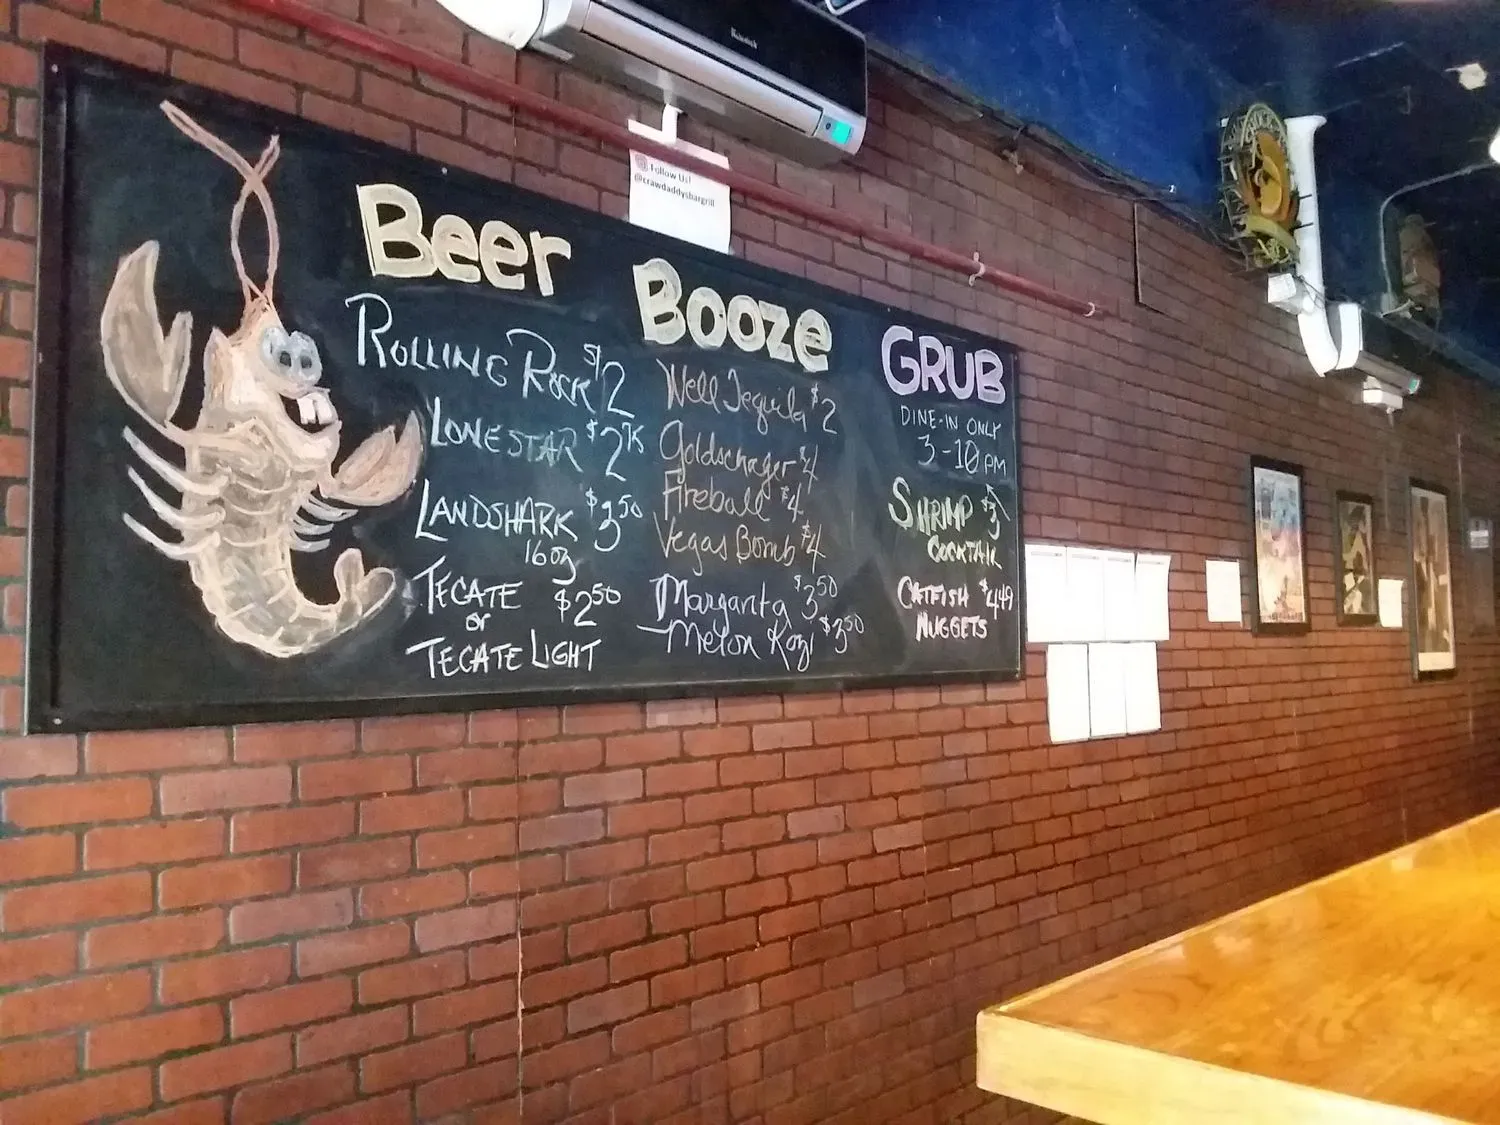 Follow Us!
@crawdaddysbargrill
Beer
ROLLING ROCK $2
LONESTAR $2
LANDSHARK $3.50
16oz
TECATE $2.50
or
TECATE LIGHT
Booze
Well Tequila $2
Goldschager $4
Fireball $4
Vegas Bomb $4
Margarita $3.50
Melon Kozi $3.50
GRUB
DINE-IN ONLY
3-10 PM
SHRIMP $3
COCKTAIL
CATFISH $4.49
NUGGETS